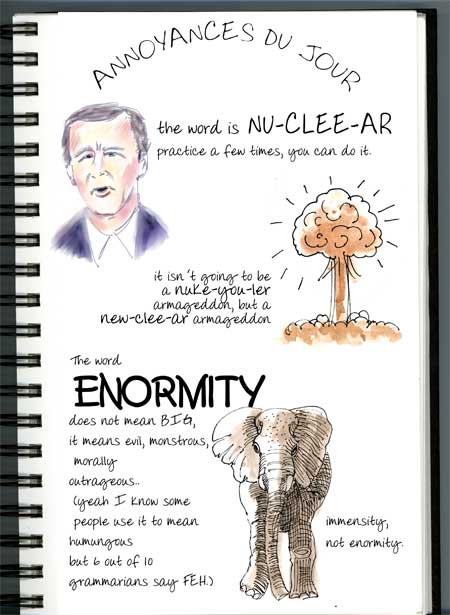 ANNOYANCES DU JOUR
the word is NU-CLEE-AR
practice a few times, you can do it.
it isn't going to be
a nuke-you-ler
armageddon, but a
new-clee-ar armageddon
The word
ENORMITY
does not mean BIG,
it means evil, monstrous,
morally
outrageous..
(yeah I know some
people use it to mean
humungous
but 6 out of 10
grammarians say FEH.)
immensity,
not enormity.